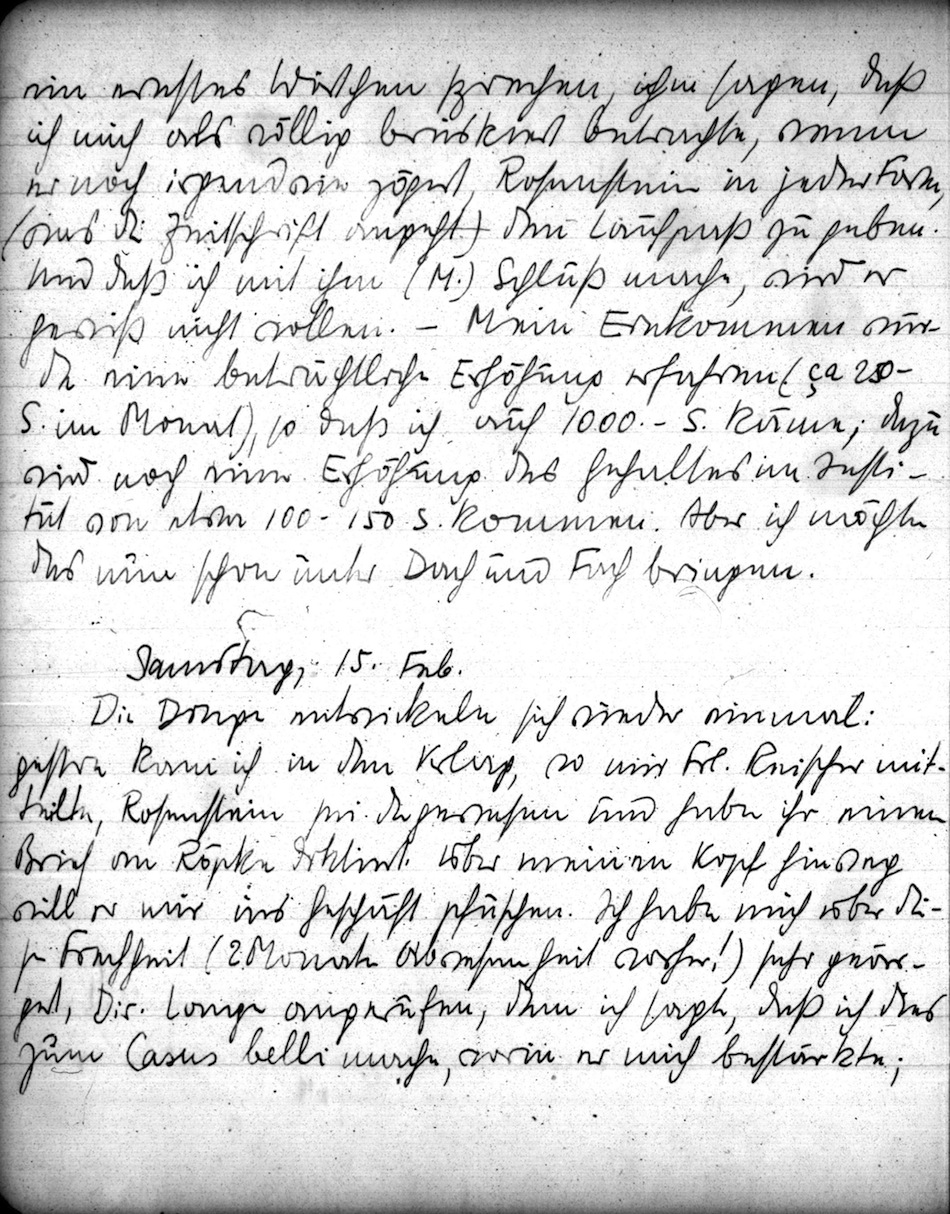 ein ernstes Wörtchen sprechen, ihm sagen, daß
ich mich als völlig brüskiert betrachte, wenn
er noch irgendwie zögert, Rosenstein in jeder Form,
(was die Zeitschrift angeht) den Laufpaß zu geben.
Und daß ich mit ihm (M.) Schluß mache, wird er
gewiß nicht wollen. – Mein Einkommen wür-
de eine beträchtliche Erhöhung erfahren (ça 250-
S. im Monat), so daß ich auf 1000.- S. käme; dazu
wird noch eine Erhöhung des Gehaltes im Insti-
tut von etwa 100-150 S. kommen. Aber ich möchte
das nun schon unter Dach und Fach bringen.
Samstag, 15. Feb.
Die Dinge entwickeln sich wieder einmal:
gestern kam ich in den Verlag, wo mir Frl. Reischer mit-
teilte, Rosenstein sei dagewesen und habe ihr einen
Brief an Röpke diktiert. Über meinen Kopf hinweg
will er mir ins Geschäft pfuschen. Ich habe mich über die-
se Frechheit (2 Monate Abwesenheit vorher!) sehr geär-
gert, Dir. Lange angerufen, dem ich sagte, daß ich dies
zum Casus belli mache, worin er mich bestärkte;